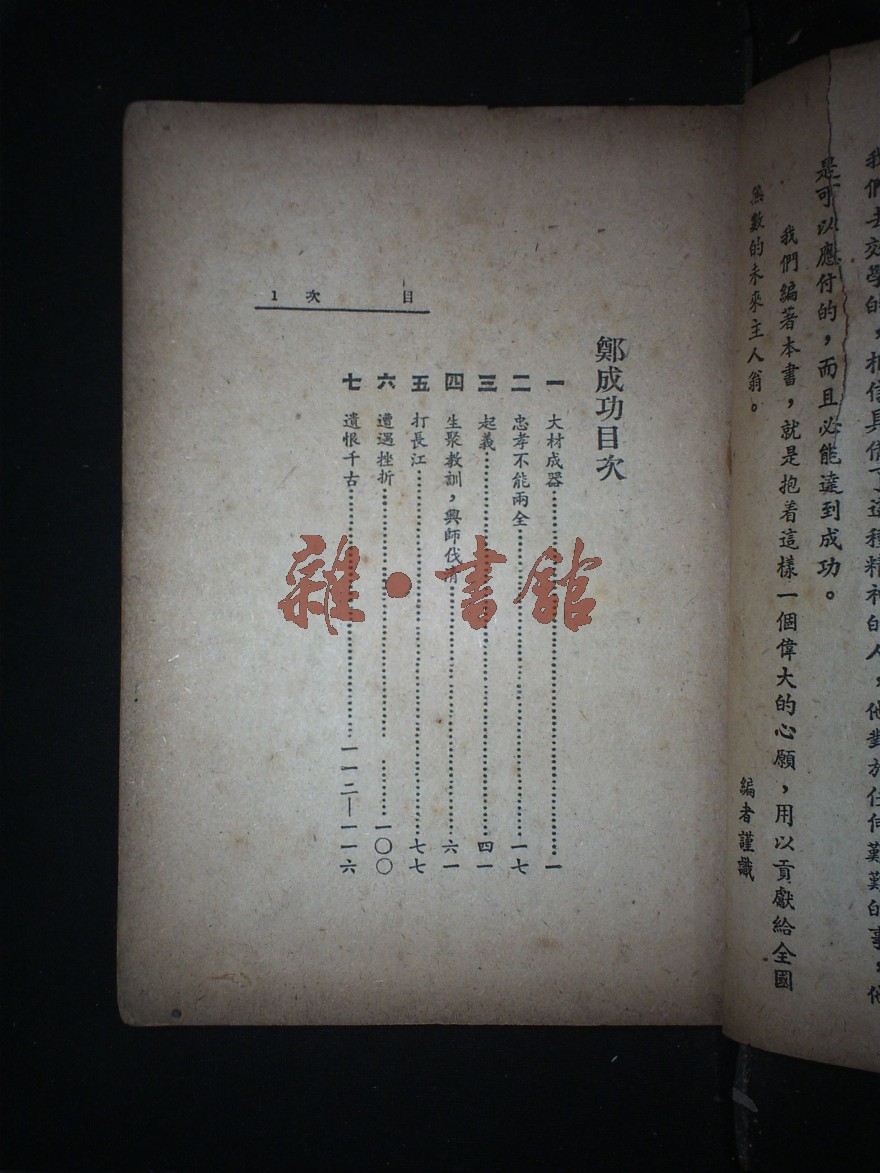 我們去效學的，相信具備了這種精神的人，他對於任何艱難的事，他
是可以應付的，而且必能達到成功。
我們編著本書，就是抱着這樣一個偉大的心願，用以貢獻給全國
無數的未來主人翁。
編者謹識
目次 1
鄭成功目次
一 大材成器…………一
二 忠孝不能兩全…………一七
三 起義…………四一
四 生聚教訓，興師伐清…………六一
五 打長江…………七七
六 遭遇挫折…………一〇〇
七 遺恨千古…………一一二—一一六
雜·書館